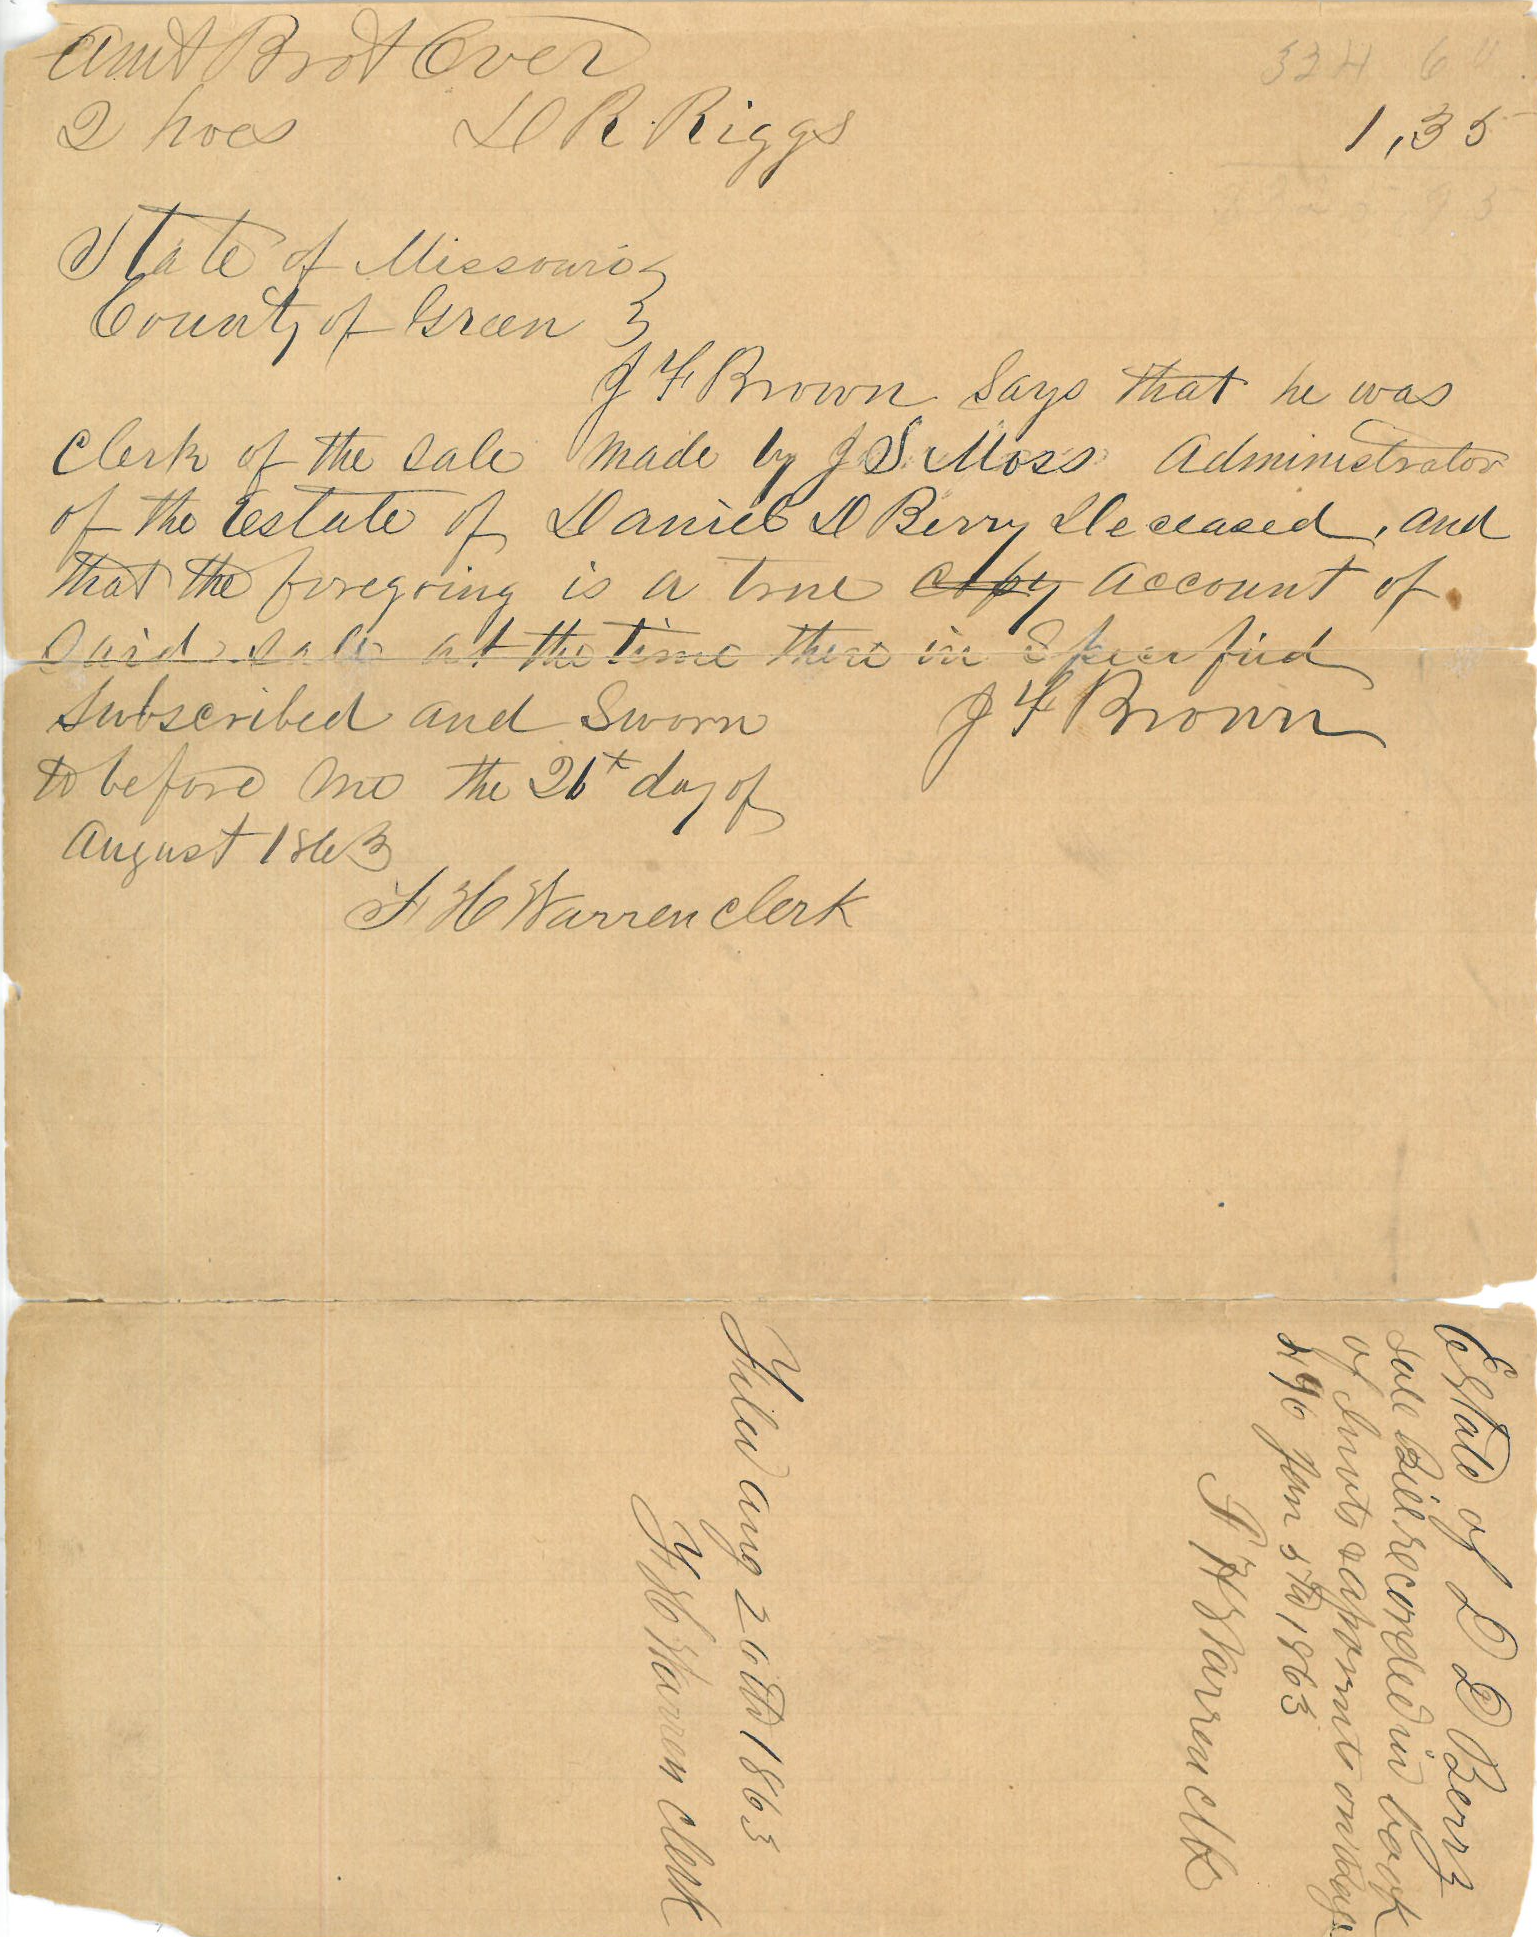 Amt Brot Over 324 60
2 hoes D R Riggs 1,35
325.95
State of Missouri }
County of Green }
J F Brown Says that he was
Clerk of the sale made by J S Moss Administrator
of the Estate of Daniel D Berry Deceased, and
that the foregoing is a true copy account of
Said sale at the time there in Specified
Subscribed and Sworn J F Brown
to before me the 26t day of
August 1863
F H Warren Clerk
Filed Aug 26th 1863
F H Warren Clerk
Estate of D D Berry
sale Bill recorded in book
of Invts & apormts on Page
Jan 5th 1863
F H Warren Clk